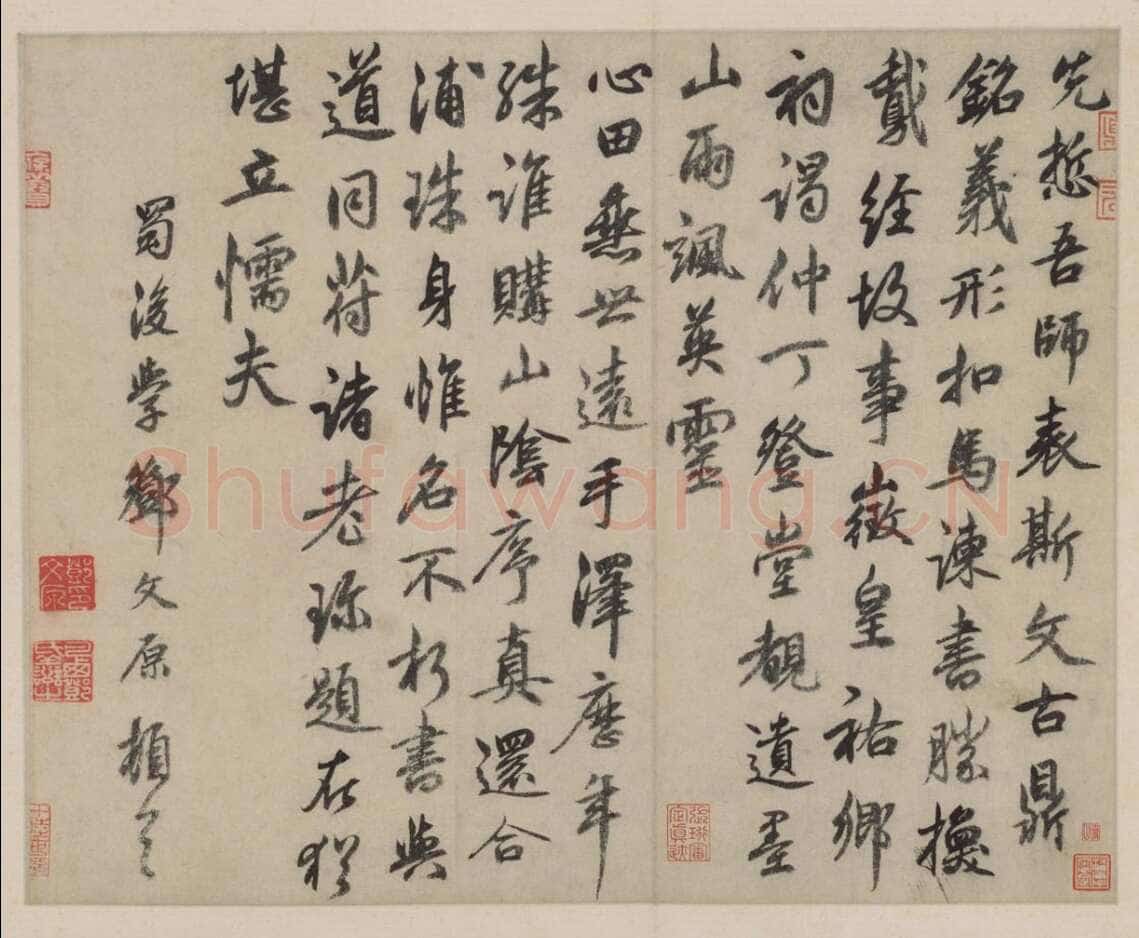 先悊吾師表斯文古鼎
銘義形扣馬諫書勝換
鵞經故事徵皇祐鄉
祠謁仲丁登堂覩遺墨
山雨颯英靈
心田垂世遠手澤歷年
殊誰購山陰序真還合
浦珠身惟名不朽書與
道同符諸老珎題在猶
堪立懦夫
蜀後學鄧文原頓首
Shufawang.CN